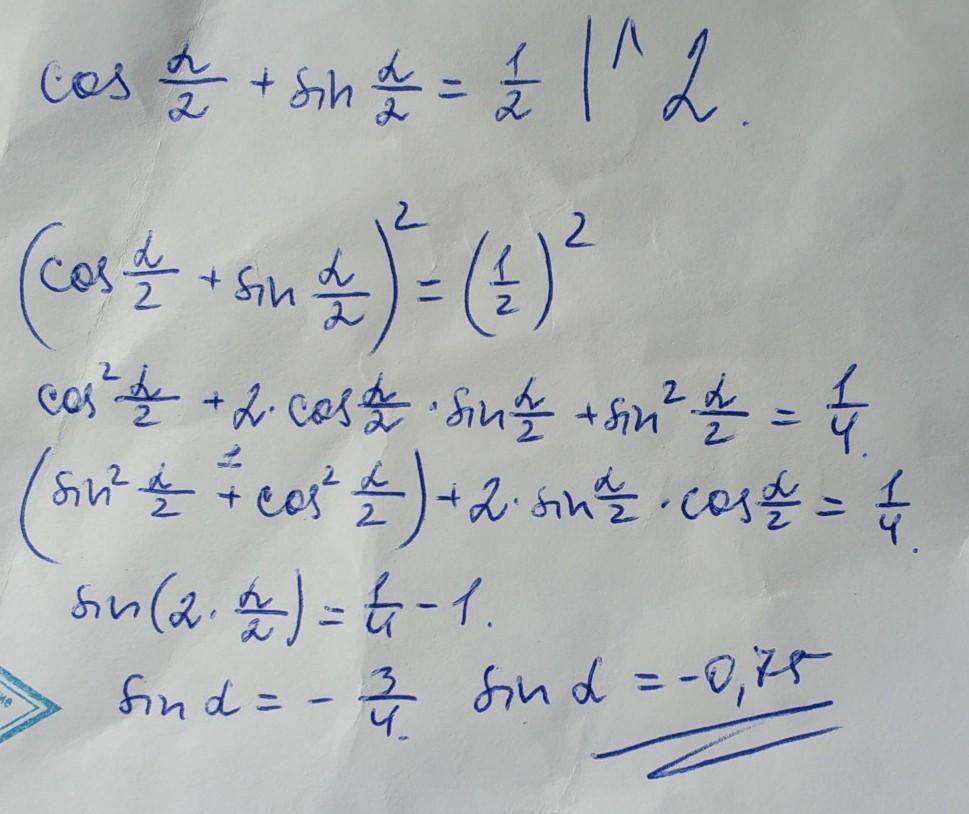 cos α/2 + sin α/2 = 1/2 |^2.
(cos α/2 + sin α/2)² = (1/2)²
cos² α/2 + 2·cos α/2 · sin α/2 + sin² α/2 = 1/4.
1
(sin² α/2 + cos² α/2) + 2·sin α/2 · cos α/2 = 1/4.
sin(2·α/2) = 1/4 - 1.
sin α = - 3/4. sin α = -0,75